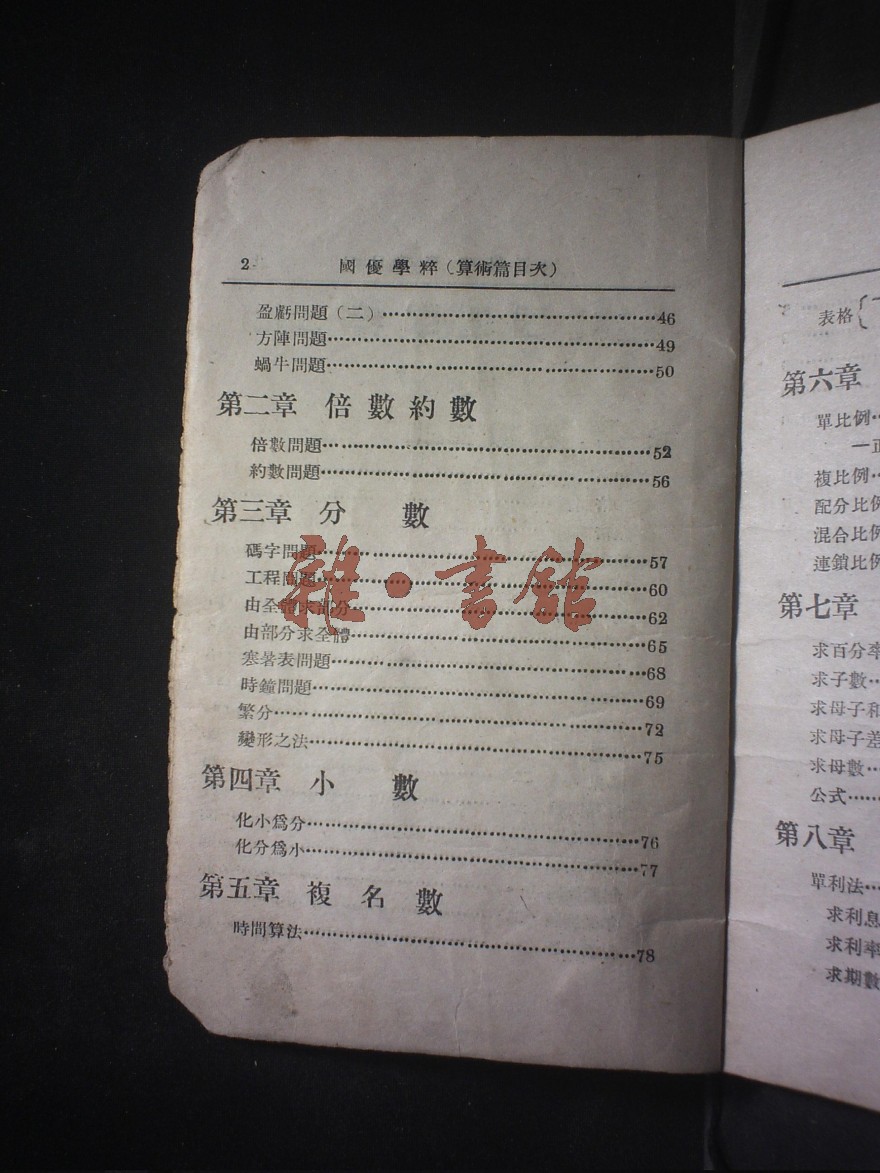 2
國優學粹（算術篇目次）
盈虧問題（二）………………46
方陣問題………………49
蝸牛問題………………50
第二章 倍數約數
倍數問題………………52
約數問題………………56
第三章 分數
碼字問題………………57
工程問題………………60
由全體求部分………………62
由部分求全體………………65
寒暑表問題………………68
時鐘問題………………69
繁分………………72
變形之法………………75
第四章 小數
化小爲分………………76
化分爲小………………77
第五章 複名數
時間算法………………78
雜·書館
表格
第六章
單比例…
複比例…
配分比例
混合比例
連鎖比例
第七章
求百分率
求子數…
求母子和
求母子差
求母數…
公式……
第八章
單利法…
求利息
求利率
求期數